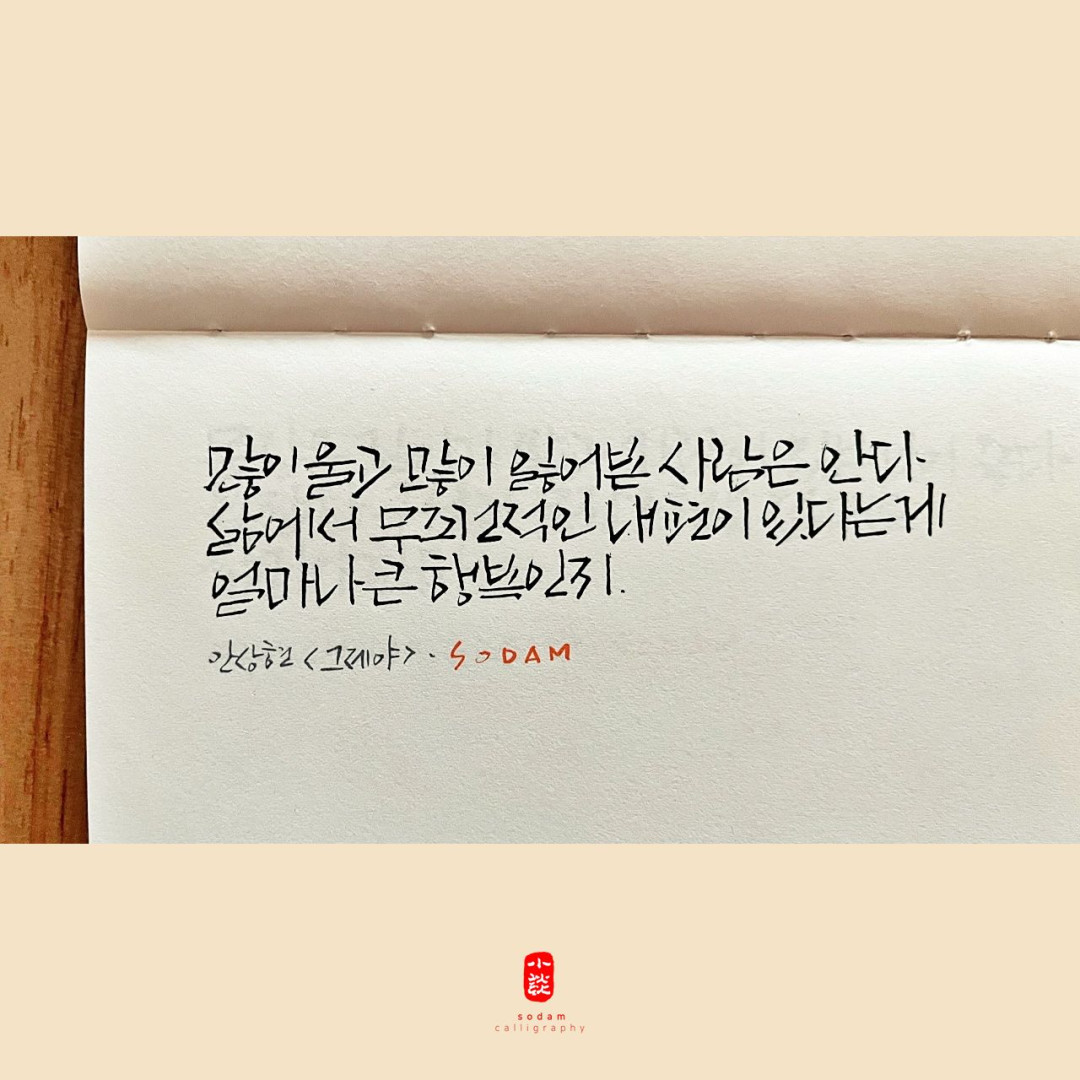 많이 울고 많이 잃어본 사람은 안다.
삶에서 무조건적인 내편이 있다는게
얼마나 큰 행복인지.
안상현 <그제야>. SODAM
小談
sodam
calligraphy